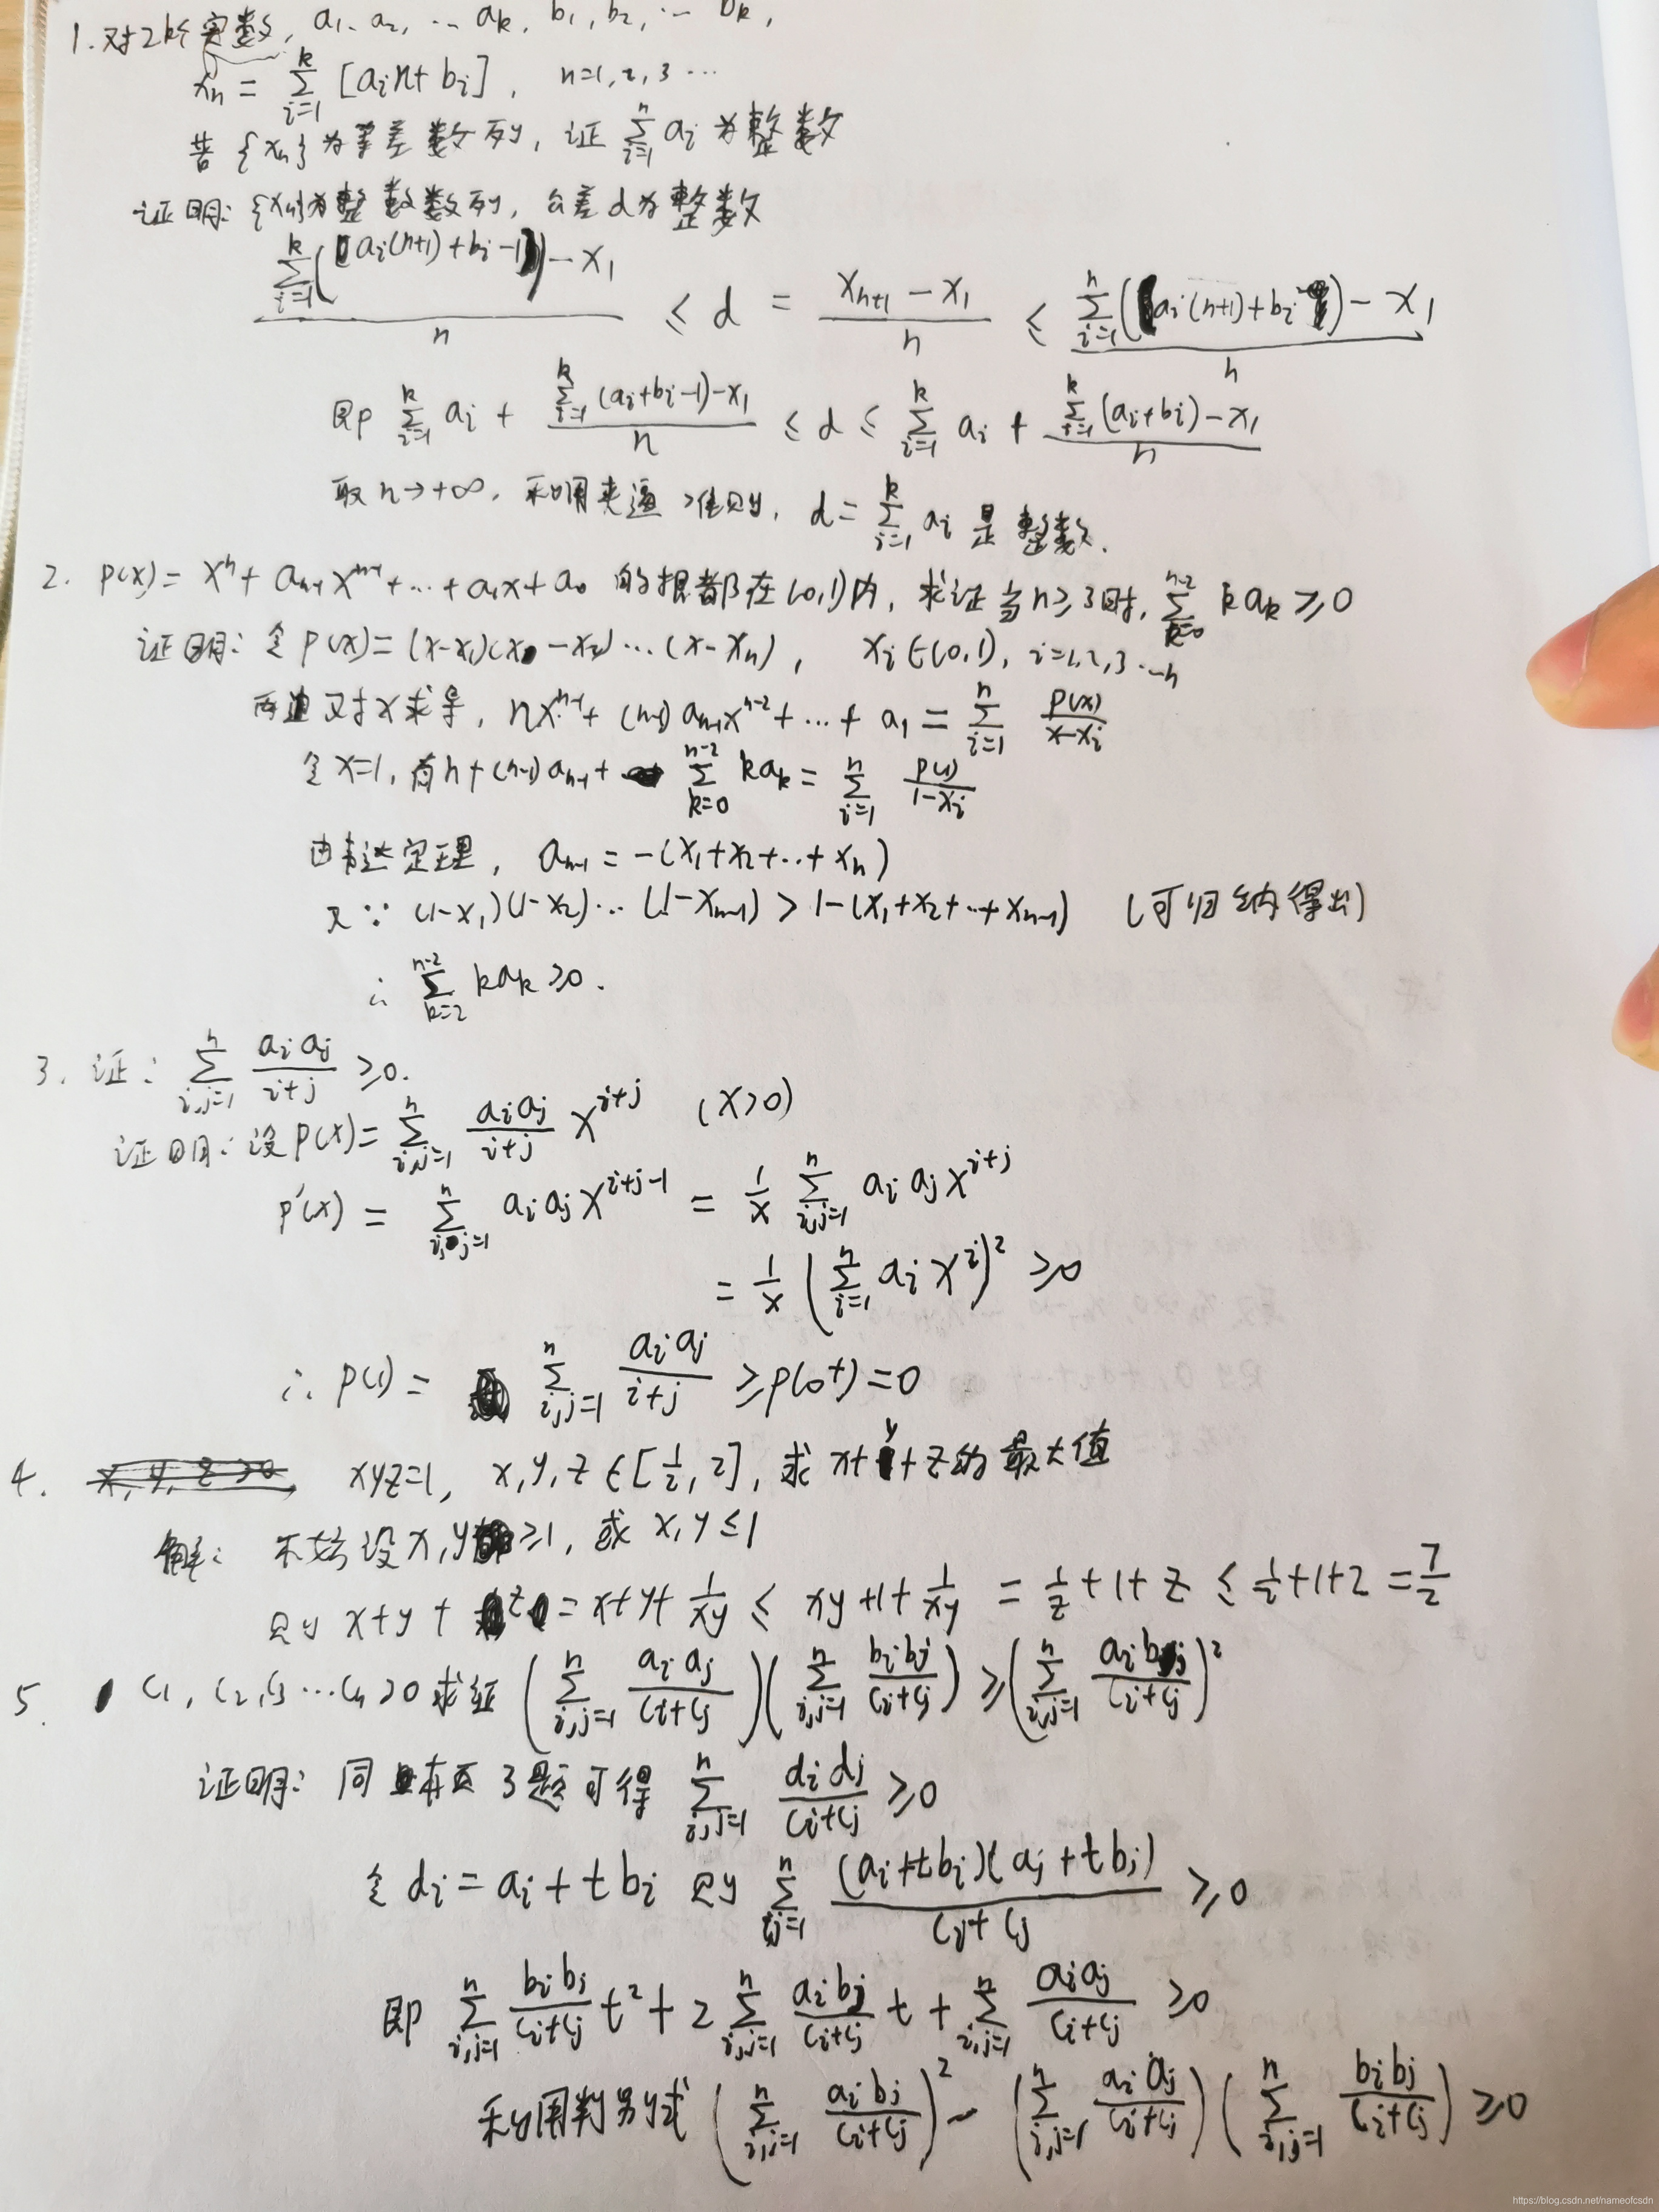 1. 对2k个实数, a₁、a₂, … aₖ, b₁, b₂, … bₖ,
xₙ = ∑_{i=1}^{k} [aᵢn + bᵢ], n=1, 2, 3 …
若{xₙ}为等差数列, 证 ∑_{i=1}^{n} aᵢ 为整数
证明: {xₙ}为整数数列, 公差d为整数
(∑_{i=1}^{k} (aᵢ(n+1)+bᵢ-1) - x₁)/n ≤ d = (x_{n+1} - x₁)/n ≤ (∑_{i=1}^{n} (aᵢ(n+1)+bᵢ) - x₁)/n
即 ∑_{i=1}^{k} aᵢ + (∑_{i=1}^{k} (aᵢ+bᵢ-1) - x₁)/n ≤ d ≤ ∑_{i=1}^{k} aᵢ + (∑_{i=1}^{k} (aᵢ+bᵢ) - x₁)/n
取 n→+∞, 利用夹逼准则, d = ∑_{i=1}^{k} aᵢ 是整数.
2. P(x) = xⁿ + a_{n-1}x^{n-1} + … + a₁x + a₀ 的根都在(0,1)内, 求证当n≥3时, ∑_{k=0}^{n-2} kaₖ ≥ 0
证明: 令P(x) = (x-x₁)(x-x₂)…(x-xₙ), xᵢ∈(0,1), i=1,2,3…n
两边对x求导, nx^{n-1} + (n-1)a_{n-1}x^{n-2} + … + a₁ = ∑_{i=1}^{n} P(x)/(x-xᵢ)
令x=1, 有n+(n-1)a_{n-1} + ∑_{k=0}^{n-2} kaₖ = ∑_{i=1}^{n} P(1)/(1-xᵢ)
由韦达定理, a_{n-1} = -(x₁+x₂+…+xₙ)
又∵ (1-x₁)(1-x₂)…(1-x_{n-1}) > 1-(x₁+x₂+…+x_{n-1}) (可归纳得出)
∴ ∑_{k=2}^{n-2} kaₖ ≥0.
3. 证: ∑_{i,j=1}^{n} aᵢaⱼ/(i+j) ≥0.
证明: 设P(x) = ∑_{i,j=1}^{n} aᵢaⱼ/(i+j) x^{i+j} (x>0)
P'(x) = ∑_{i,j=1}^{n} aᵢaⱼx^{i+j-1} = 1/x ∑_{i,j=1}^{n} aᵢaⱼx^{i+j}
= 1/x (∑_{i=1}^{n} aᵢxⁱ)² ≥0
∴ P(1) = ∑_{i,j=1}^{n} aᵢaⱼ/(i+j) ≥ P(0⁺) = 0
4. xyz=1, x,y,z∈[1/2, 2], 求x+y+z的最大值
解: 不妨设x,y≥1, 或x,y≤1
则 x+y+z = x+y+1/(xy) ≤ xy+1+1/(xy) = 1/z+1+z ≤ 1/2+1+2 = 7/2
5. c₁, c₂, c₃…cₙ>0 求证 (∑_{i,j=1}^{n} aᵢaⱼ/(cᵢ+cⱼ))(∑_{i,j=1}^{n} bᵢbⱼ/(cᵢ+cⱼ)) ≥ (∑_{i,j=1}^{n} aᵢbⱼ/(cᵢ+cⱼ))²
证明: 同本页3题可得 ∑_{i,j=1}^{n} dᵢdⱼ/(cᵢ+cⱼ) ≥0
令dᵢ = aᵢ + tbᵢ 则 ∑_{i,j=1}^{n} (aᵢ+tbᵢ)(aⱼ+tbⱼ)/(cᵢ+cⱼ) ≥0
即 ∑_{i,j=1}^{n} bᵢbⱼ/(cᵢ+cⱼ) t² + 2∑_{i,j=1}^{n} aᵢbⱼ/(cᵢ+cⱼ) t + ∑_{i,j=1}^{n} aᵢaⱼ/(cᵢ+cⱼ) ≥0
利用判别式 (∑_{i,j=1}^{n} aᵢbⱼ/(cᵢ+cⱼ))² - (∑_{i,j=1}^{n} aᵢaⱼ/(cᵢ+cⱼ))(∑_{i,j=1}^{n} bᵢbⱼ/(cᵢ+cⱼ)) ≥0
https://blog.csdn.net/nameofcsdn